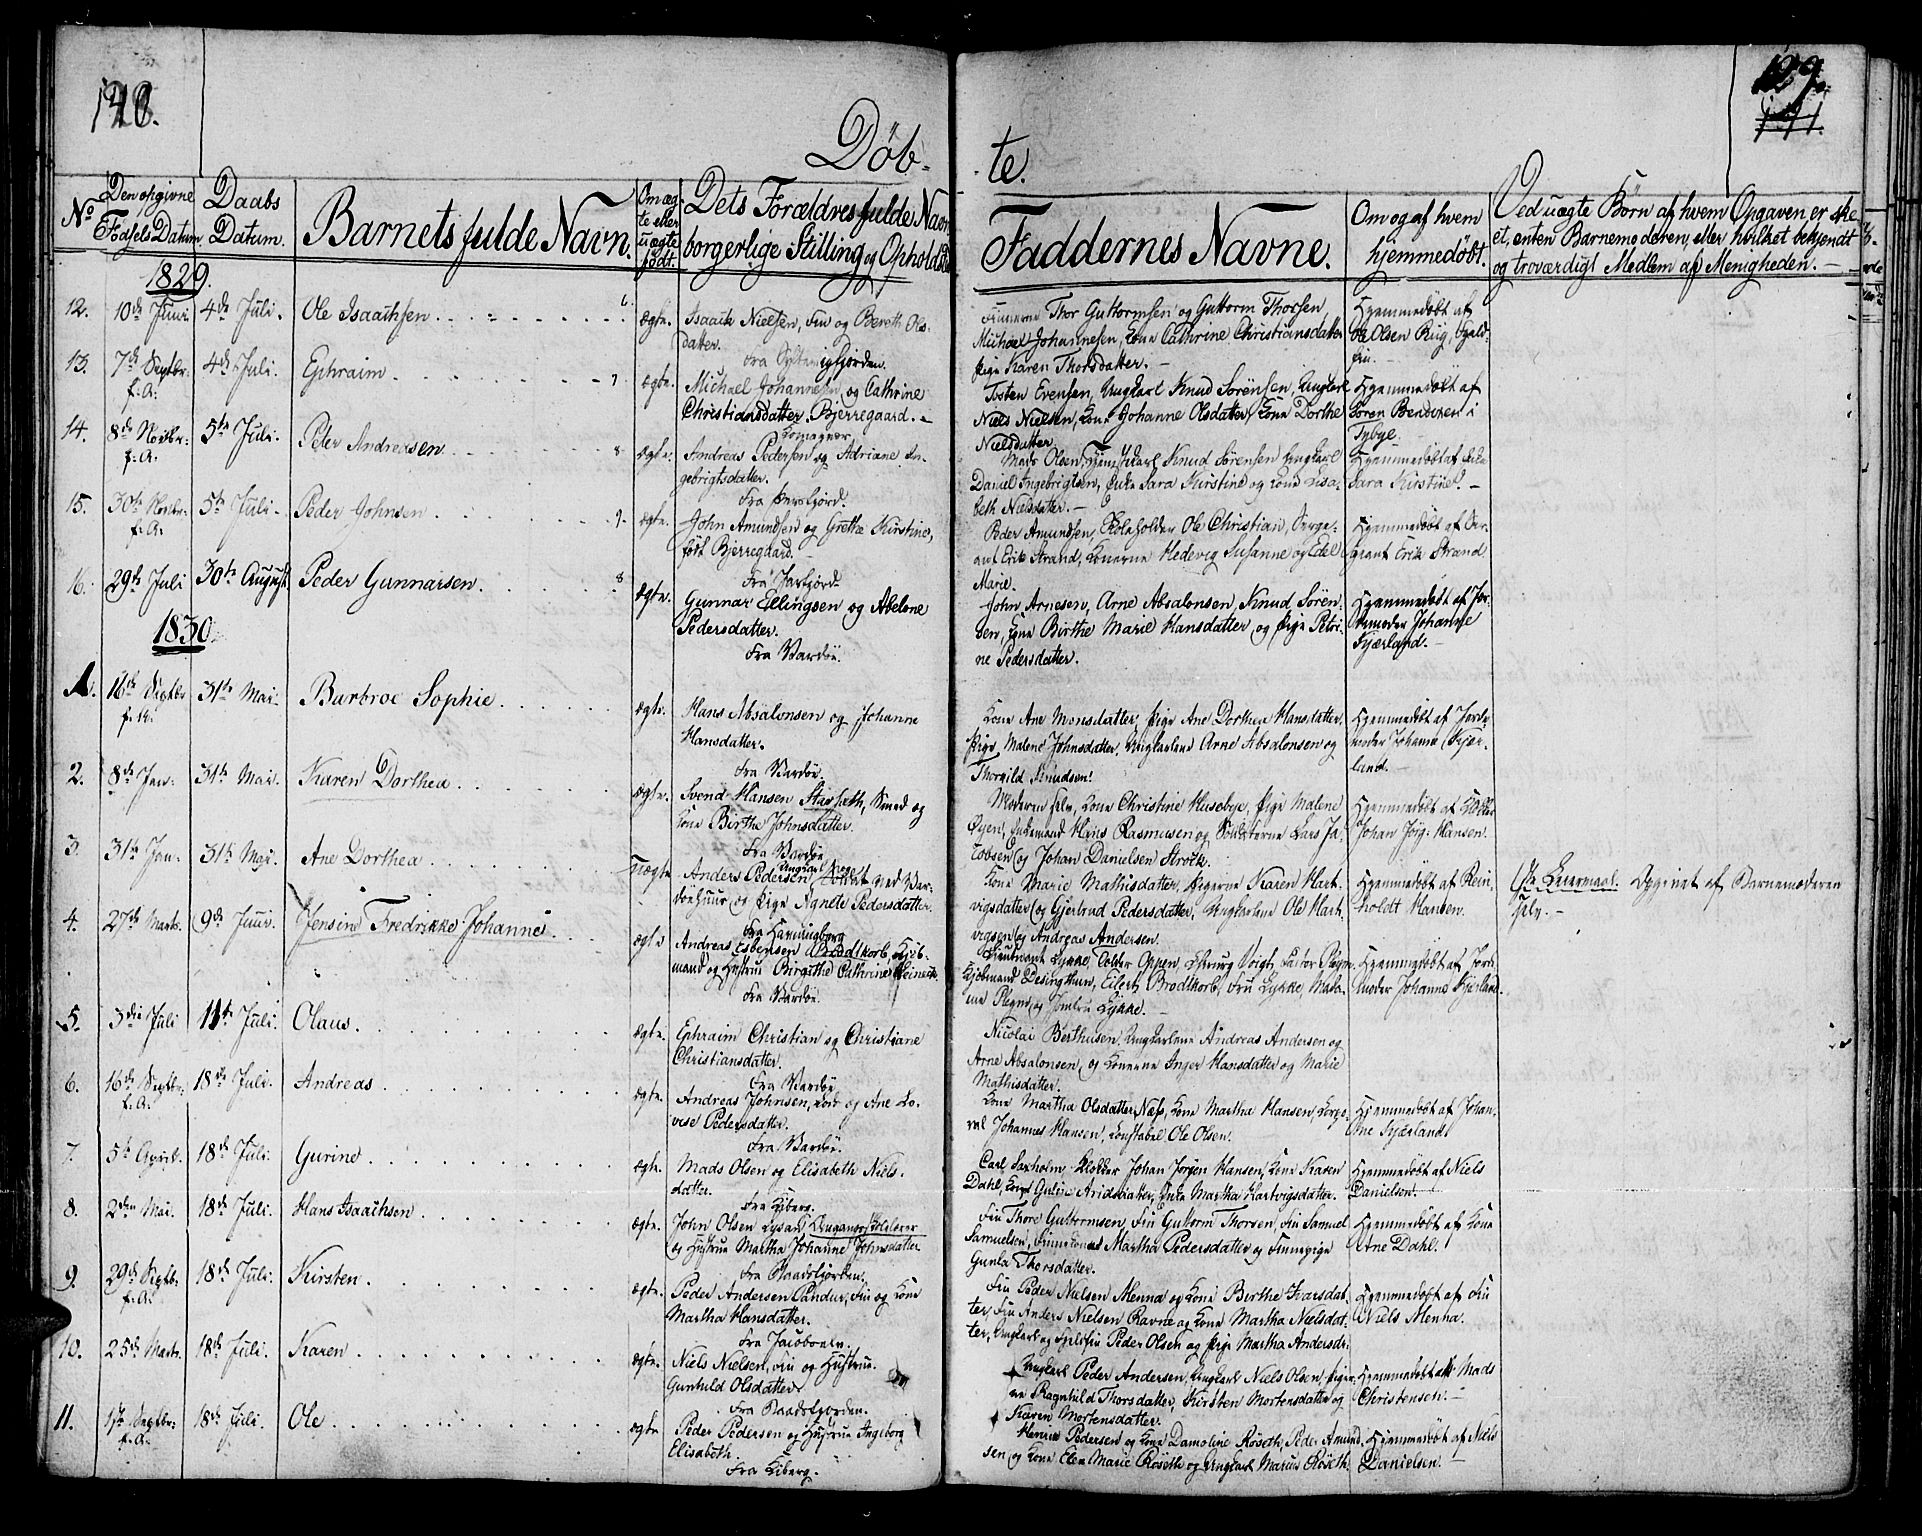 140.
129.
141.
Døb-
te.
No
Den opgivne Fødsels Datum
Daabs Datum.
Barnets fulde Navn.
Om ægte eller uægte født.
Dets Forældres fulde Navn borgerlige Stilling og Opholdsted
Faddernes Navne.
Om og af hvem hjemmedøbt.
Ved uægte Børn af hvem Opgaven er skeet, enten Barnemoderen, eller hvilket bekjendt og troværdigt Medlem af Menigheden.
1829.
12. 10de Juni. 4de Juli. Ole Isaachsen 6. ægte. Isaach Nielsen, Fin og Bereth Olsdatter.
Finnerne Thor Guttormsen og Guttorm Thorsen, Michael Johannesen, Kone Cathrine Christiansdatter Pige Karen Thorsdatter.
Hjemmedøbt af Ole Olsen
13. 7de Septbr. f. A. 4de Juli. Ephraim 7. ægte. Michael Johannesen og Cathrine Christiansdatter Bjerregaard.
Tosten Evensen, Ungkarl Knud Sørensen, Ungkarl Niels Nielsen, Kone Johanne Olsdatter, Kone Dorthe Nielsdatter
Hjemmedøbt af Søren Bendixen i Tybye.
14. 8de Novbr. f. A. 5te Juli. Peder Andreasen 8 ægte. Andreas Pedersen og Adriane Ingebrigtsdatter.
Mads Olsen, Knud Sørensen Ungkarl Daniel Ingebrigtsen, Enke Sara Kirstine og Kone Elisabeth Nielsdatter.
Hjemmedøbt af Enke Sara Kirstine.
15. 30te Novbr. f. A. 5te Juli. Peder Johnsen 9. ægte. Fra Persfjord. John Amundsen og Grethe Kirstine, født Bjerregaard.
Peder Amundsen, Skoleholder Ole Christian, Sergeant Erik Strand, Konerne Hedevig Susanne og Edel Marie.
Hjemmedøbt af Sergeant Erik Strand
16. 29de Juli 30te August Peder Gunnarsen 8 ægte. Fra Jarfjord. Gunnar Ellingsen og Abelone Pedersdatter. Fra Vardøe.
John Arnesen, Arne Absalonsen, Knud Sørensen, Kone Birthe Marie Hansdatter, og Pige Petrine Pedersdatter.
Hjemmedøbt af Jordemoder Johanne Kjærland.
1830
1. 16de Septbr f. A. 31te Mai. Barbroe Sophie ægte. Hans Absalonsen og Johanne Hansdatter. Fra Vardøe.
Kone Ane Monsdatter, Pige Ane Dorthea Hansdatter, Pige Malene Johnsdatter, Ungkarlene Arne Absalonsen og Thorgild Knudsen.
Hjemmedøbt af Jordemoder Johanne Kjærland.
2. 8de Jan. 31te Mai. Karen Dorthea ægte. Svend Hansen Stavseth, Smed og Kone Birthe Johnsdatter. Fra Vardøe
Moderen selv, Kone Christine Husebye, Pige Malene Øyen, Enkemand Hans Rasmusen og Lars Jacobsen og Johan Danielsen Strøck.
Hjemmedøbt af Klokker Johan Jørg: Hansen.
3. 31te Jan. 31te Mai. Ane Dorthea uægte Anders Pedersen Ungkarl Soldat ved Vardøehuus og Pige Agnete Pedersdatter.
Kone Marie Mathisdatter, Pigerne Karen Hartvigsdatter og Gjertrud Pedersdatter, Ungkarlene Ole Hartvigsen og Andreas Andersen.
Hjemmedøbt af Reinholdt Hansen.
1ste Leiermaal. Opgivet af Barnemoderen selv.
4. 27de Marts. 9de Juni. Jensine Fredrikke Johanne ægte Fra Havningberg Andreas Esbensen Brodtkorb, Kjøbmand og Hustrue Birgithe Cathrine Heineck Fra Vardøe.
Lieutenant Lykke, Tolder Oppen, Chirurg Voigt, Factor Plegm, Kjøbmand Esbensen, Eilert Brodtkorb, Fru Lykke, Madame Plegm og Jomfru Lykke.
Hjemmedøbt af Jordemoder Johanne Kjærland
5. 3die Juli 11te Juli. Olaus. ægte. Ephraim Christian og Christiane Christiansdatter. Fra Vardøe
Nicolai Berthusen, Ungkarlene Andreas Andersen og Arne Absalonsen, og Konerne Inger Hansdatter og Marie Mathisdatter.
6. 16de Septbr. f. A. 18de Juli. Andreas ægte. Andreas Johnsen, og Ane Lovise Pedersdatter. Fra Vardøe.
Kone Martha Olsdatter Næss, Kone Martha Hansen, Corporal Johannes Hansen, Konstabel Ole Olsen.
Hjemmedøbt af Johanne Kjærland
7. 5te April. 18de Juli. Gurine ægte. Mads Olsen og Elisabeth Nielsdatter. Fra Kiberg.
Carl Saxholm Klokker Johan Jørgen Hansen, Kone Karen Dahl, Kone Guline Aridsdatter, Enke Martha Hartvigsdatter.
Hjemmedøbt af Niels Danielsen.
8. 2den Mai. 18de Juli. Hans Isaachsen ægte. John Olsen Lysar og Hustrue Martha Johanne Johnsdatter Fra Raadsfjorden.
Fin Thore Guttormsen, Fin Guttorm Thorsen, Fin Samuel Samuelsen, Finnekone Martha Pedersdatter og Finnepige Gunla Thorsdatter.
Hjemmedøbt af Kone Ane Dahl.
9. 29de Septbr. f. A. 18de Juli. Kirsten ægte. Peder Andersen Pandur, Fin og Kone Martha Hansdatter.
Fin Peder Nielsen Menna og Kone Berthe Ivarsdatter, Fin Anders Nielsen Ravne og Kone Martha Nielsdatter, Ungkarl og Fjeldfin Peder Olsen og Pige Martha Andersdr.
Hjemmedøbt af Fin Niels Menna.
10. 25de Marts. 18de Juli. Karen ægte. Fra Jacobselv. Niels Nielsen, Fin og Hustrue. Gunhild Olsdatter Fra Raadsfjorden.
Ungkarl Peder Andersen, Ungkarl Niels Olsen, Pigerne Ragnhild Thorsdatter, Kirsten Mortensdatter og Karen Mortensdatter.
Hjemmedøbt af Mads Christensen.
11. 17de Septbr. f. A. 18de Juli. Ole ægte Peder Pedersen og Hustrue Ingeborg Elisabeth. Fra Kiberg.
Henrik Pedersen og Kone Damoline Røseth, Peder Amundsen og Kone Elen Marie Røseth og Ungkarl Marius Røseth.
Hjemmedøbt af Niels Danielsen.